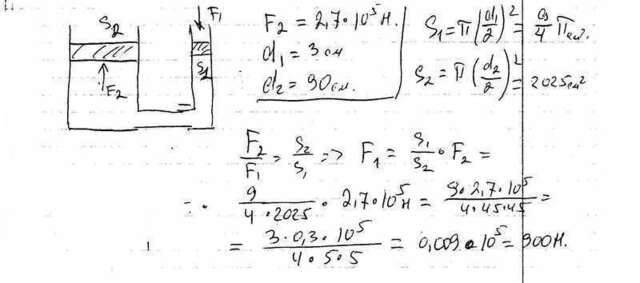 S₂
F₁
S₁
F₂
F₂ = 2,7·10⁵ Н.
d₁ = 3 см
d₂ = 90 см.
S₁ = π(d₁/2)² = 9/4 π см².
S₂ = π(d₂/2)² = 2025 см²
F₂/F₁ = S₂/S₁ => F₁ = S₁/S₂ · F₂ =
= 9/(4·2025) · 2,7·10⁵ Н = 9·2,7·10⁵/(4·45·45) =
= 3·0,3·10⁵/(4·5·5) = 0,009·10⁵ = 900 Н.